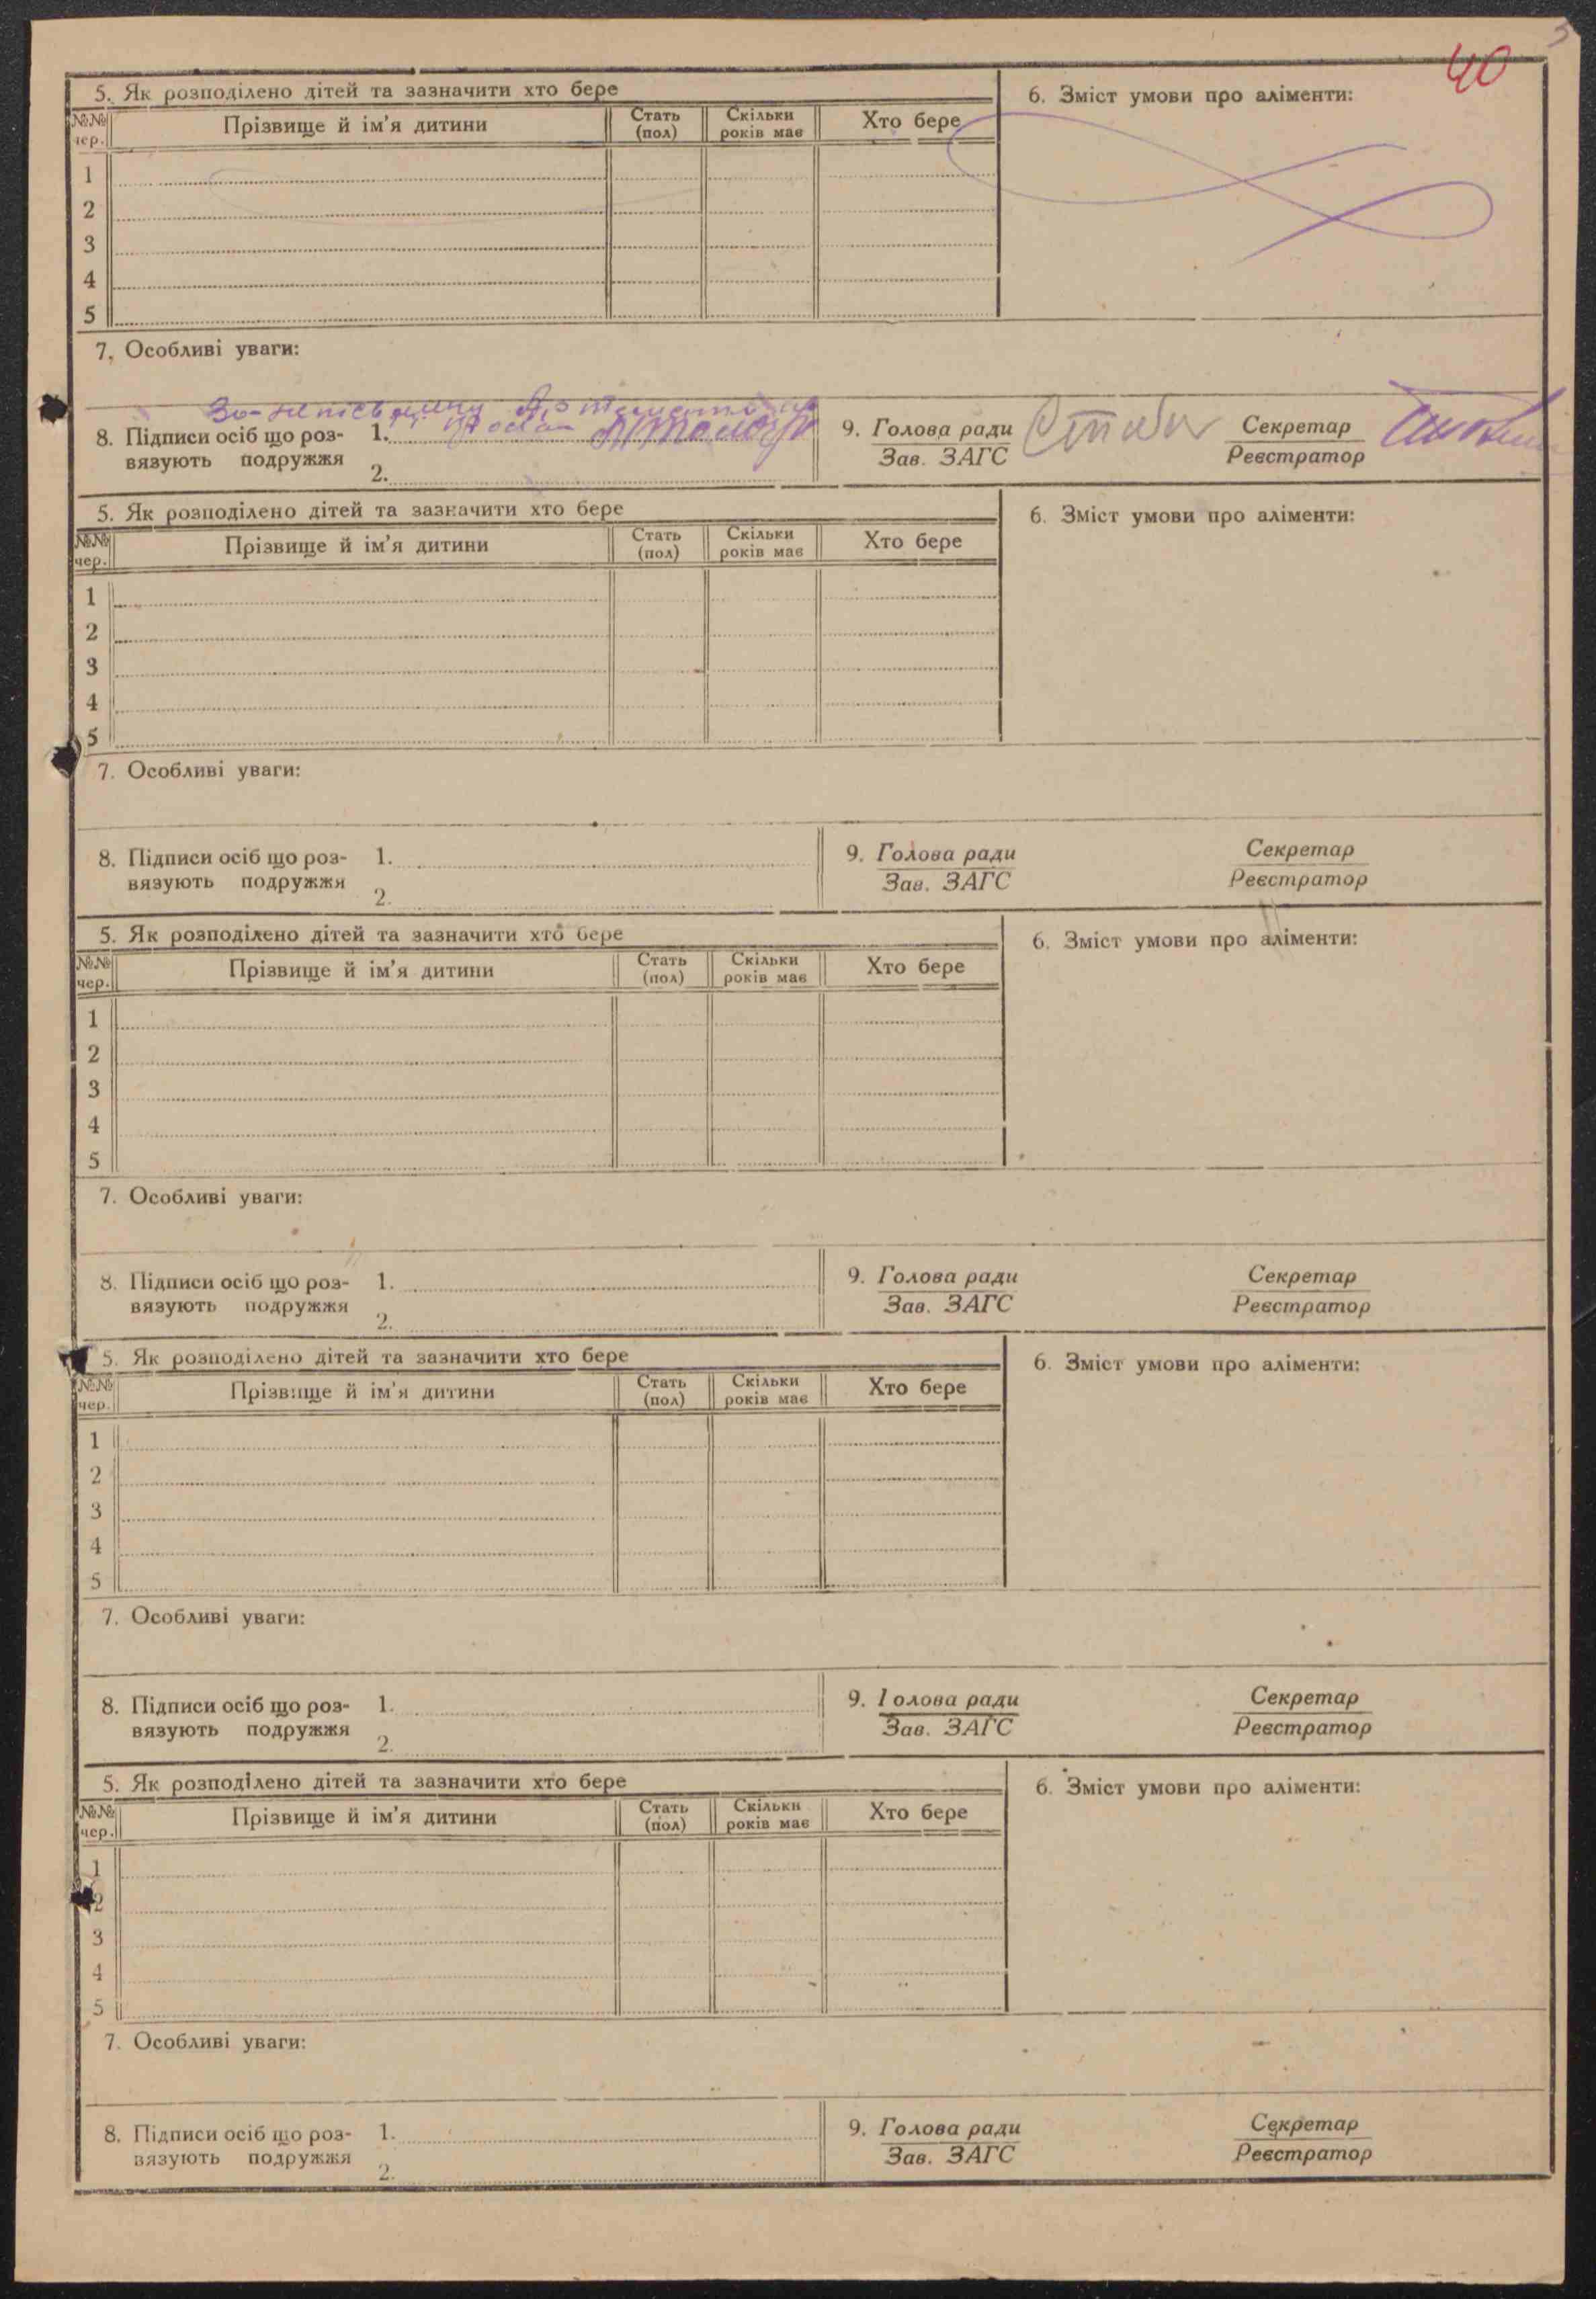 40
5. Як розподілено дітей та зазначити хто бере
6. Зміст умови про аліменти:
№№ чер. Прізвище й ім'я дитини Стать (пол) Скільки років має Хто бере
1
2
3
4
5
7. Особливі уваги:
8. Підписи осіб що роз-вязують подружжя 1.
2.
9. Голова ради
Зав. ЗАГС
Секретар
Реєстратор
5. Як розподілено дітей та зазначити хто бере
6. Зміст умови про аліменти:
№№ чер. Прізвище й ім'я дитини Стать (пол) Скільки років має Хто бере
1
2
3
4
5
7. Особливі уваги:
8. Підписи осіб що роз-вязують подружжя 1.
2.
9. Голова ради
Зав. ЗАГС
Секретар
Реєстратор
5. Як розподілено дітей та зазначити хто бере
6. Зміст умови про аліменти:
№№ чер. Прізвище й ім'я дитини Стать (пол) Скільки років має Хто бере
1
2
3
4
5
7. Особливі уваги:
8. Підписи осіб що роз-вязують подружжя 1.
2.
9. Голова ради
Зав. ЗАГС
Секретар
Реєстратор
5. Як розподілено дітей та зазначити хто бере
6. Зміст умови про аліменти:
№№ чер. Прізвище й ім'я дитини Стать (пол) Скільки років має Хто бере
1
2
3
4
5
7. Особливі уваги:
8. Підписи осіб що роз-вязують подружжя 1.
2.
9. Голова ради
Зав. ЗАГС
Секретар
Реєстратор
5. Як розподілено дітей та зазначити хто бере
6. Зміст умови про аліменти:
№№ чер. Прізвище й ім'я дитини Стать (пол) Скільки років має Хто бере
1
2
3
4
5
7. Особливі уваги:
8. Підписи осіб що роз-вязують подружжя 1.
2.
9. Голова ради
Зав. ЗАГС
Секретар
Реєстратор